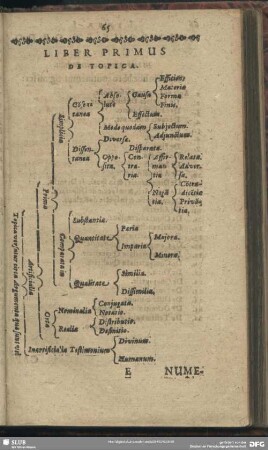 65
LIBER PRIMUS
DE TOPICA.
Topica
Artificialia
Prima
Simplicia
Consentanea
Absolute
Causa
Efficiens
Materia
Forma
Finis.
Effectum.
Modo quodam
Subjectum.
Adjunctum.
Dissentanea
Diversa.
Disparata.
Opposita,
Contraria,
Affirmantia
Relata.
Adversa.
Negantia,
Comparata in
Substantia.
Quantitate
Paria
Imparia
Majora.
Minora.
Qualitate
Similia.
Dissimilia.
Orta
Nominalia
Conjugata.
Notatio.
Realia
Distributio.
Definitio.
Inartificialia Testimonium
Divinum.
Humanum.
E
NUME-
SLUB
DFG